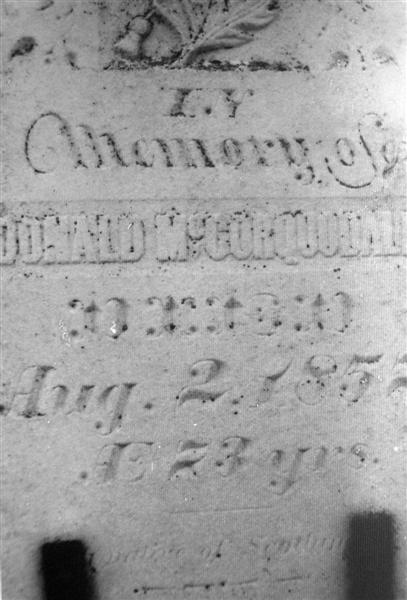 IN
Memory of
DONALD McCORQUODALE
DIED
Aug. 2, 185
Æ 73 yrs.
native of Scotland